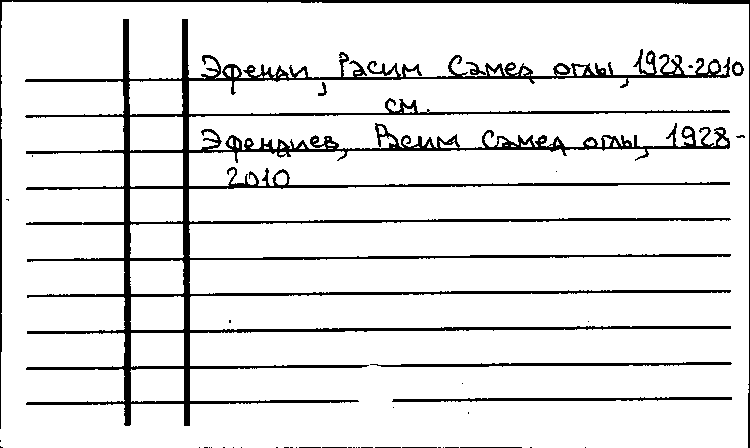 Эфенди, Рəсим Сəмед оглы, 1928-2010
см.
Эфендиев, Рəсим Сəмед оглы, 1928-
2010